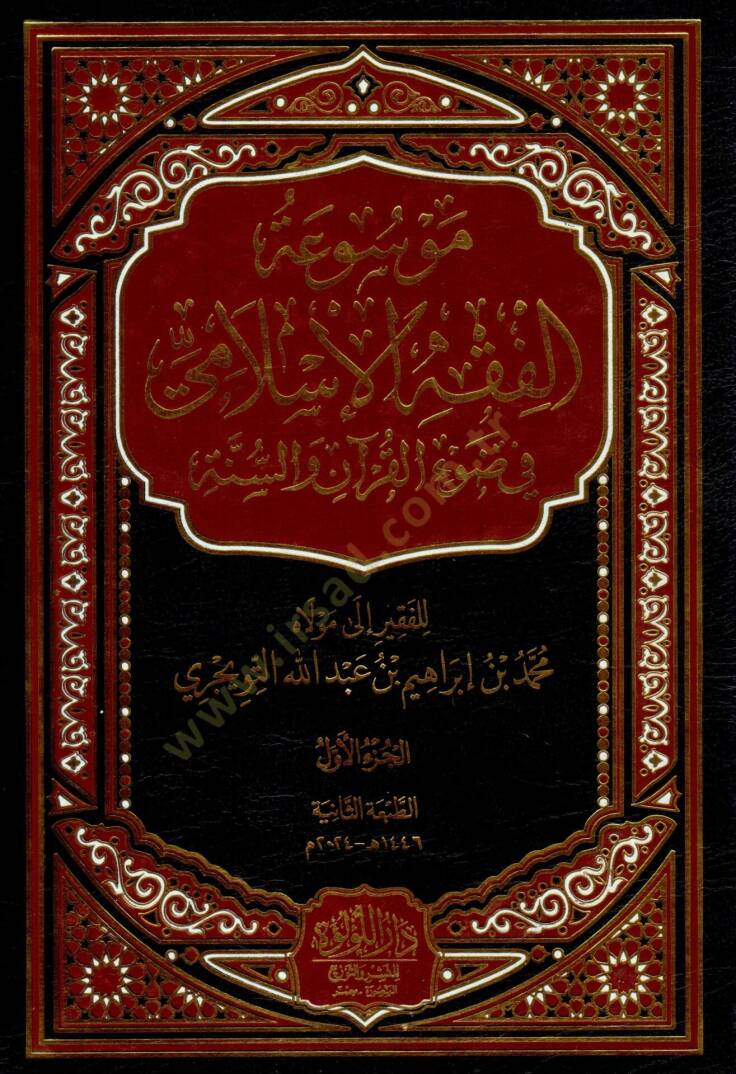 مَوْسُوعَةُ
الفِقْهِ الإِسْلَامِيِّ
فِي ضَوْءِ القُرْآنِ وَالسُّنَّةِ
لِلفَقِيرِ إِلَى مَوْلَاهُ
مُحَمَّدُ بْنُ إِبْرَاهِيم بْنُ عَبْدِ اللهِ التُّوَيْجِرِي
الجُزْءُ الأَوَّلُ
الطَّبْعَة الثَّانِيَة
١٤٤٦هـ - ٢٠٢٤م
دَارُ اللُّؤْلُؤَة
للنشر والتوزيع
المنصورة - مصر
www.imad.com.tr